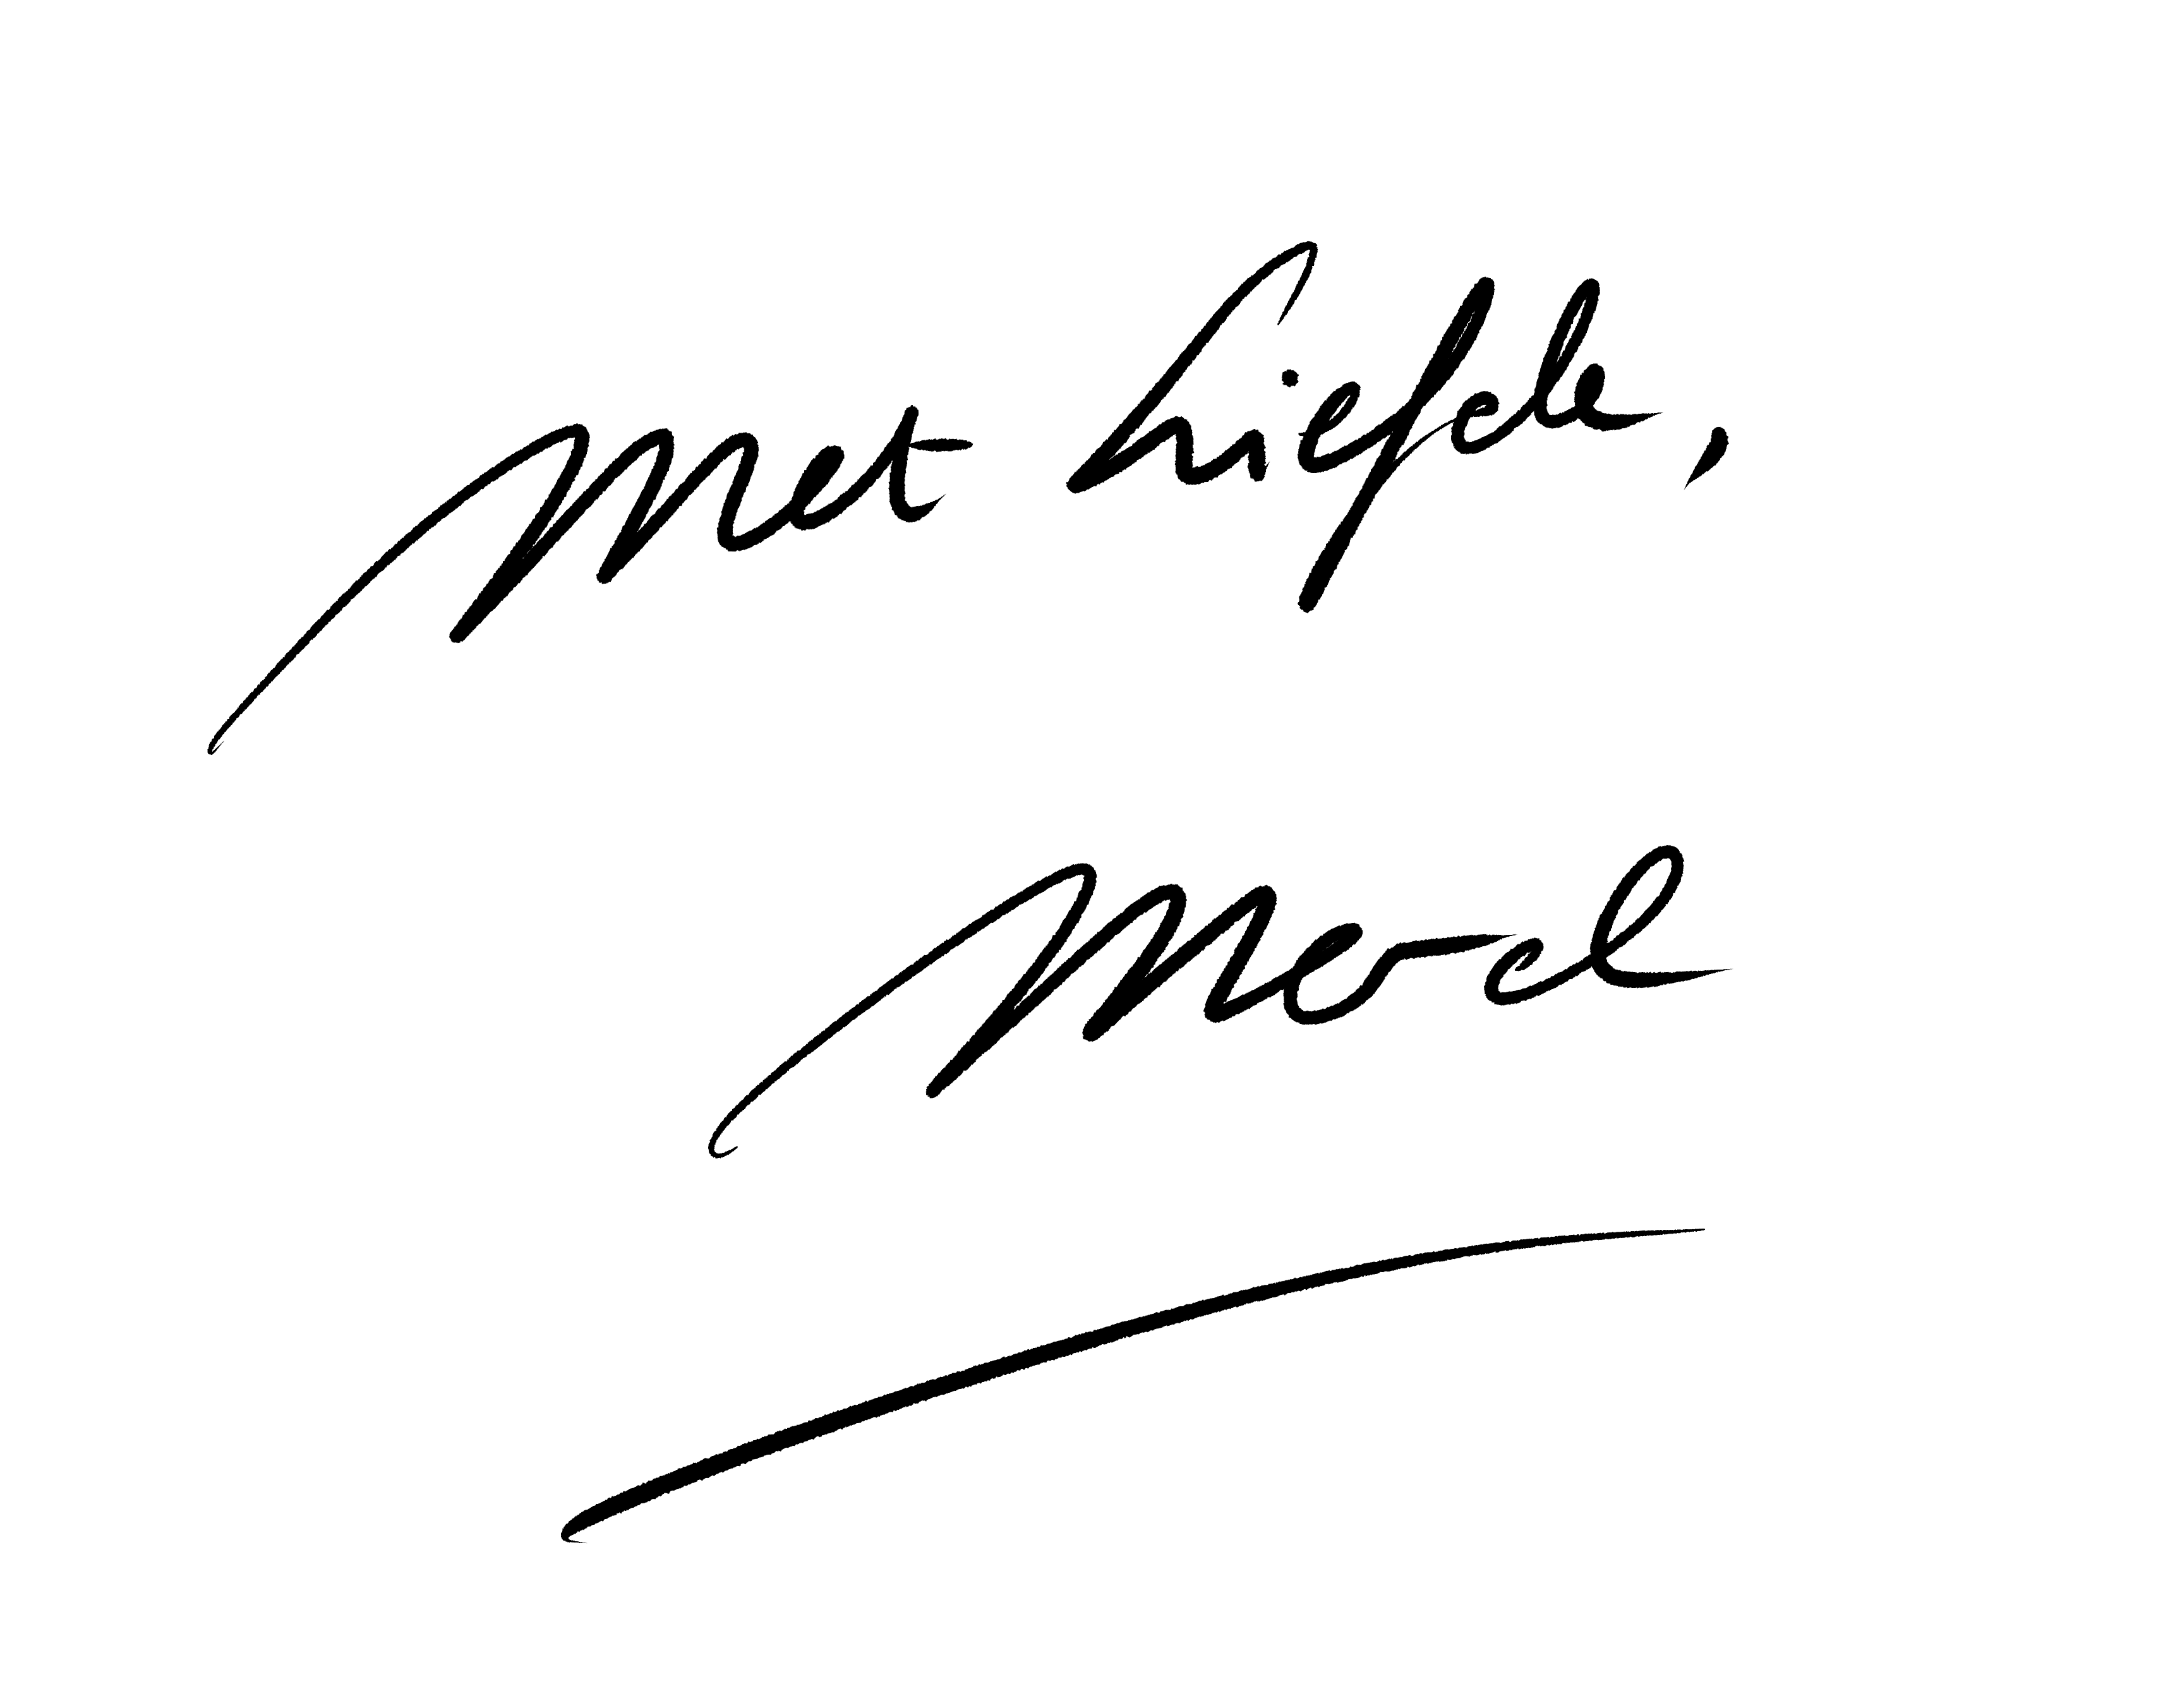 Met Liefde,
Meral